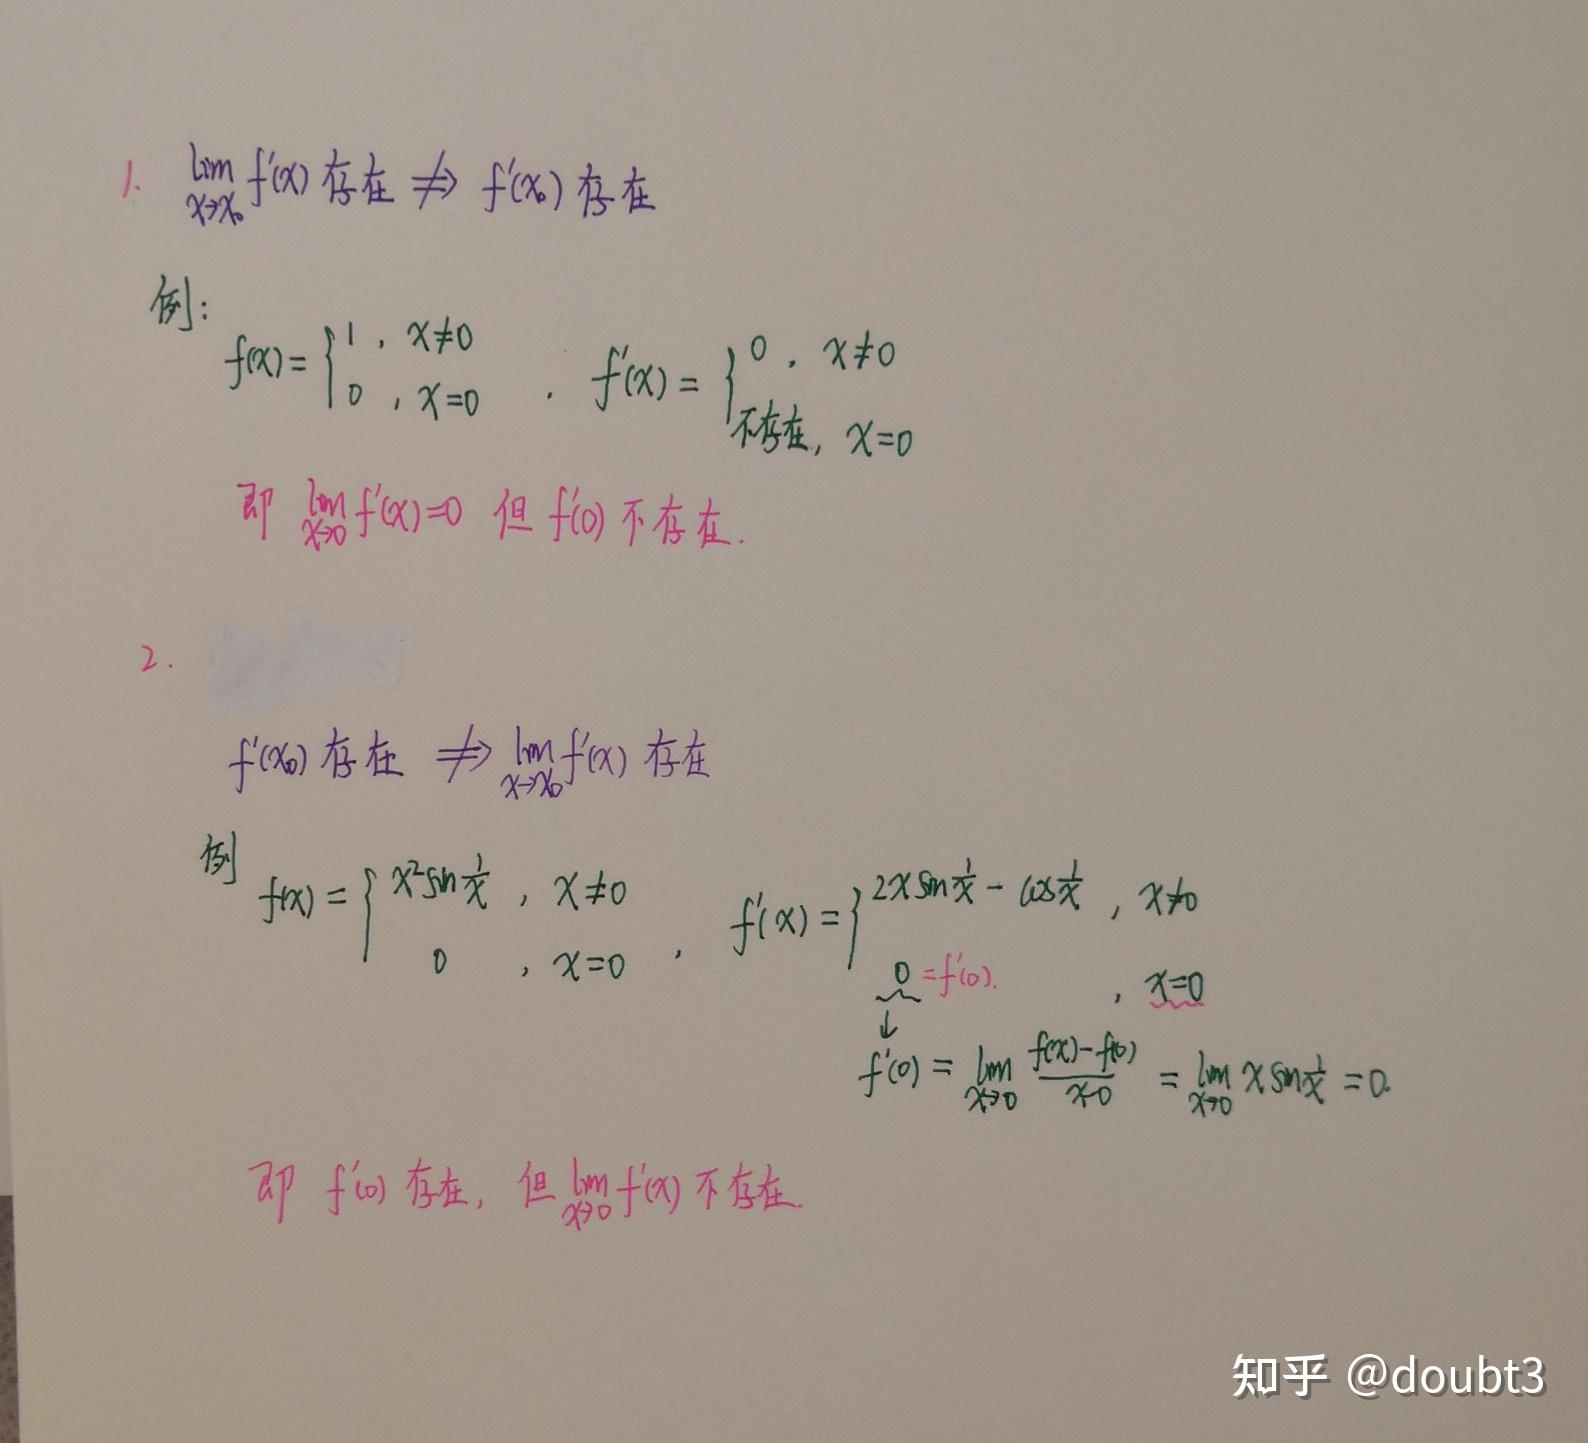 1. lim f'(x) 存在 ⇏ f'(x₀) 存在
x→x₀
例:
f(x) = { 1 , x≠0
0 , x=0
. f'(x) = { 0 , x≠0
不存在, x=0
即 lim f'(x)=0 但 f'(0) 不存在.
x→0
2.
f'(x₀) 存在 ⇏ lim f'(x) 存在
x→x₀
例
f(x) = { x² sin 1/x , x≠0
0 , x=0
, f'(x) = { 2x sin 1/x - cos 1/x , x≠0
0 = f'(0). , x=0
↓
f'(0) = lim (f(x)-f(0))/(x-0) = lim x sin 1/x = 0.
x→0 x→0
即 f'(0) 存在, 但 lim f'(x) 不存在.
x→0
知乎 @doubt3